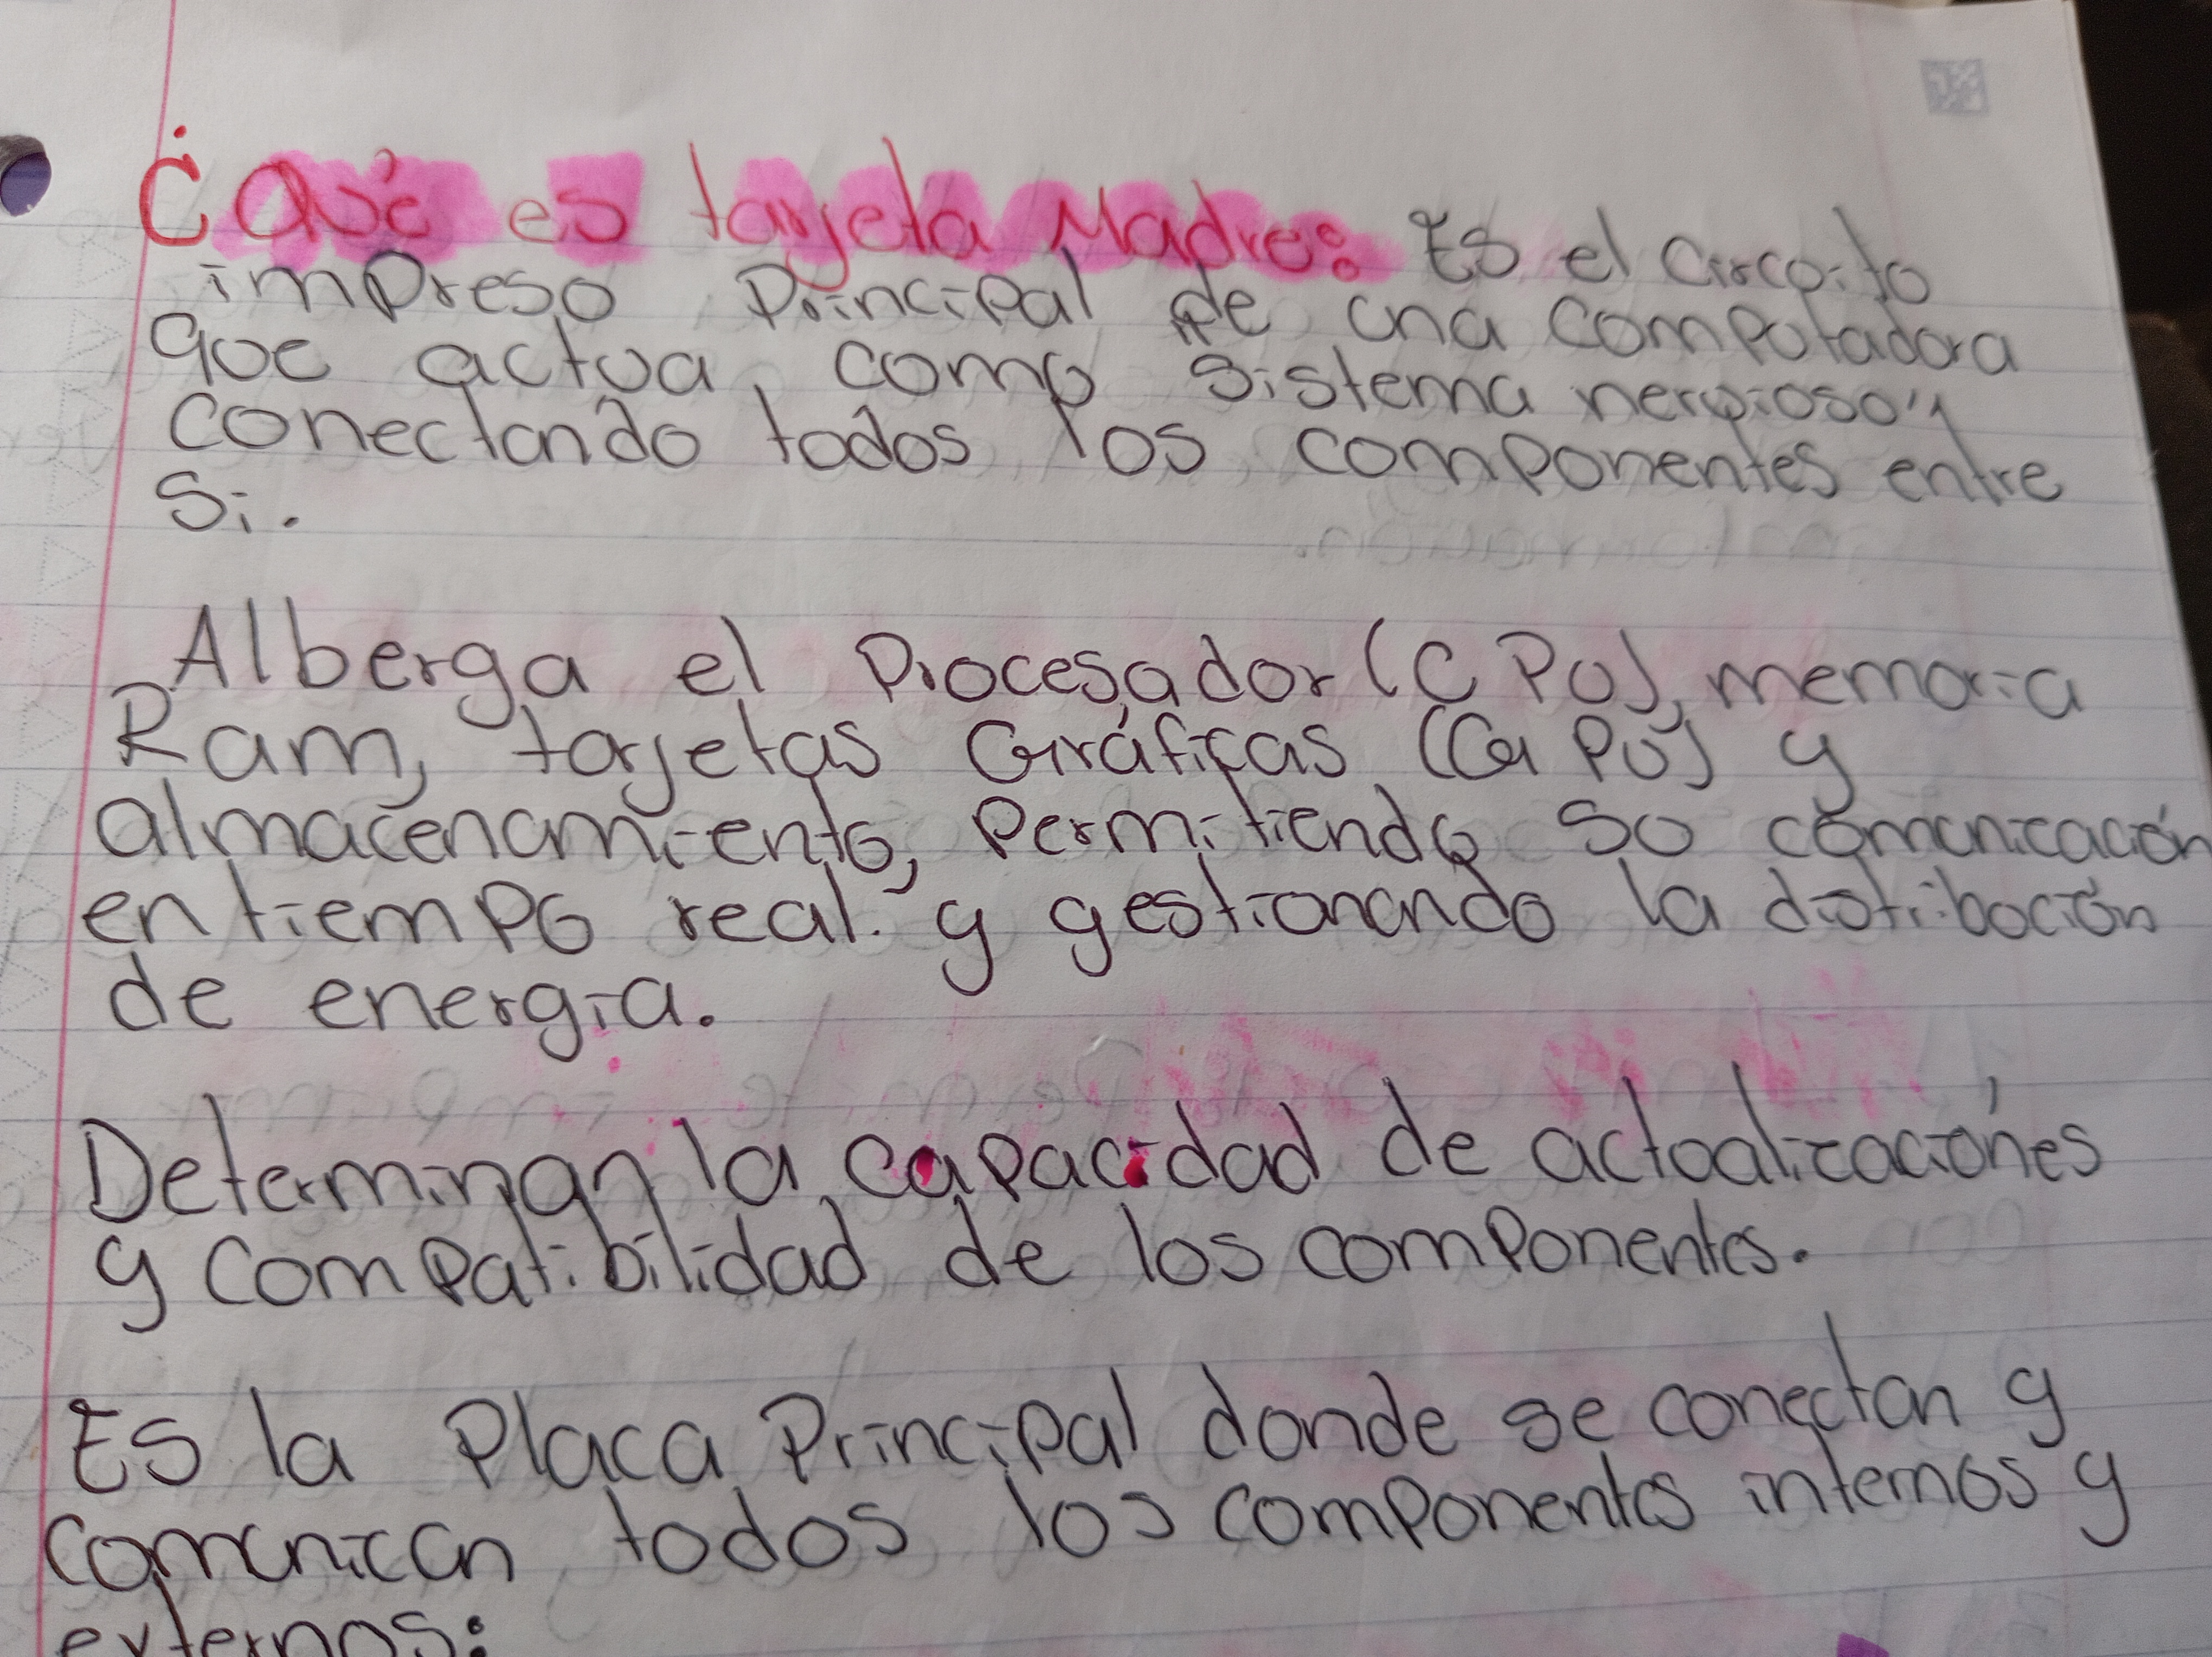 ¿Qué es tarjeta Madre: Es el circuito
impreso Principal de una computadora
que actua como sistema nervioso,
conectando todos los componentes entre
Si.
Alberga el Procesador (CPU), memoria
Ram, tarjetas Gráficas (GPU) y
almacenamiento, Permitiendo su comunicación
en tiempo real y gestionando la distribución
de energia.
Determinan la capacidad de actualizaciónes
y compatibilidad de los componentes.
Es la Placa Principal donde se conectan y
comunican todos los componentes internos y
externos: